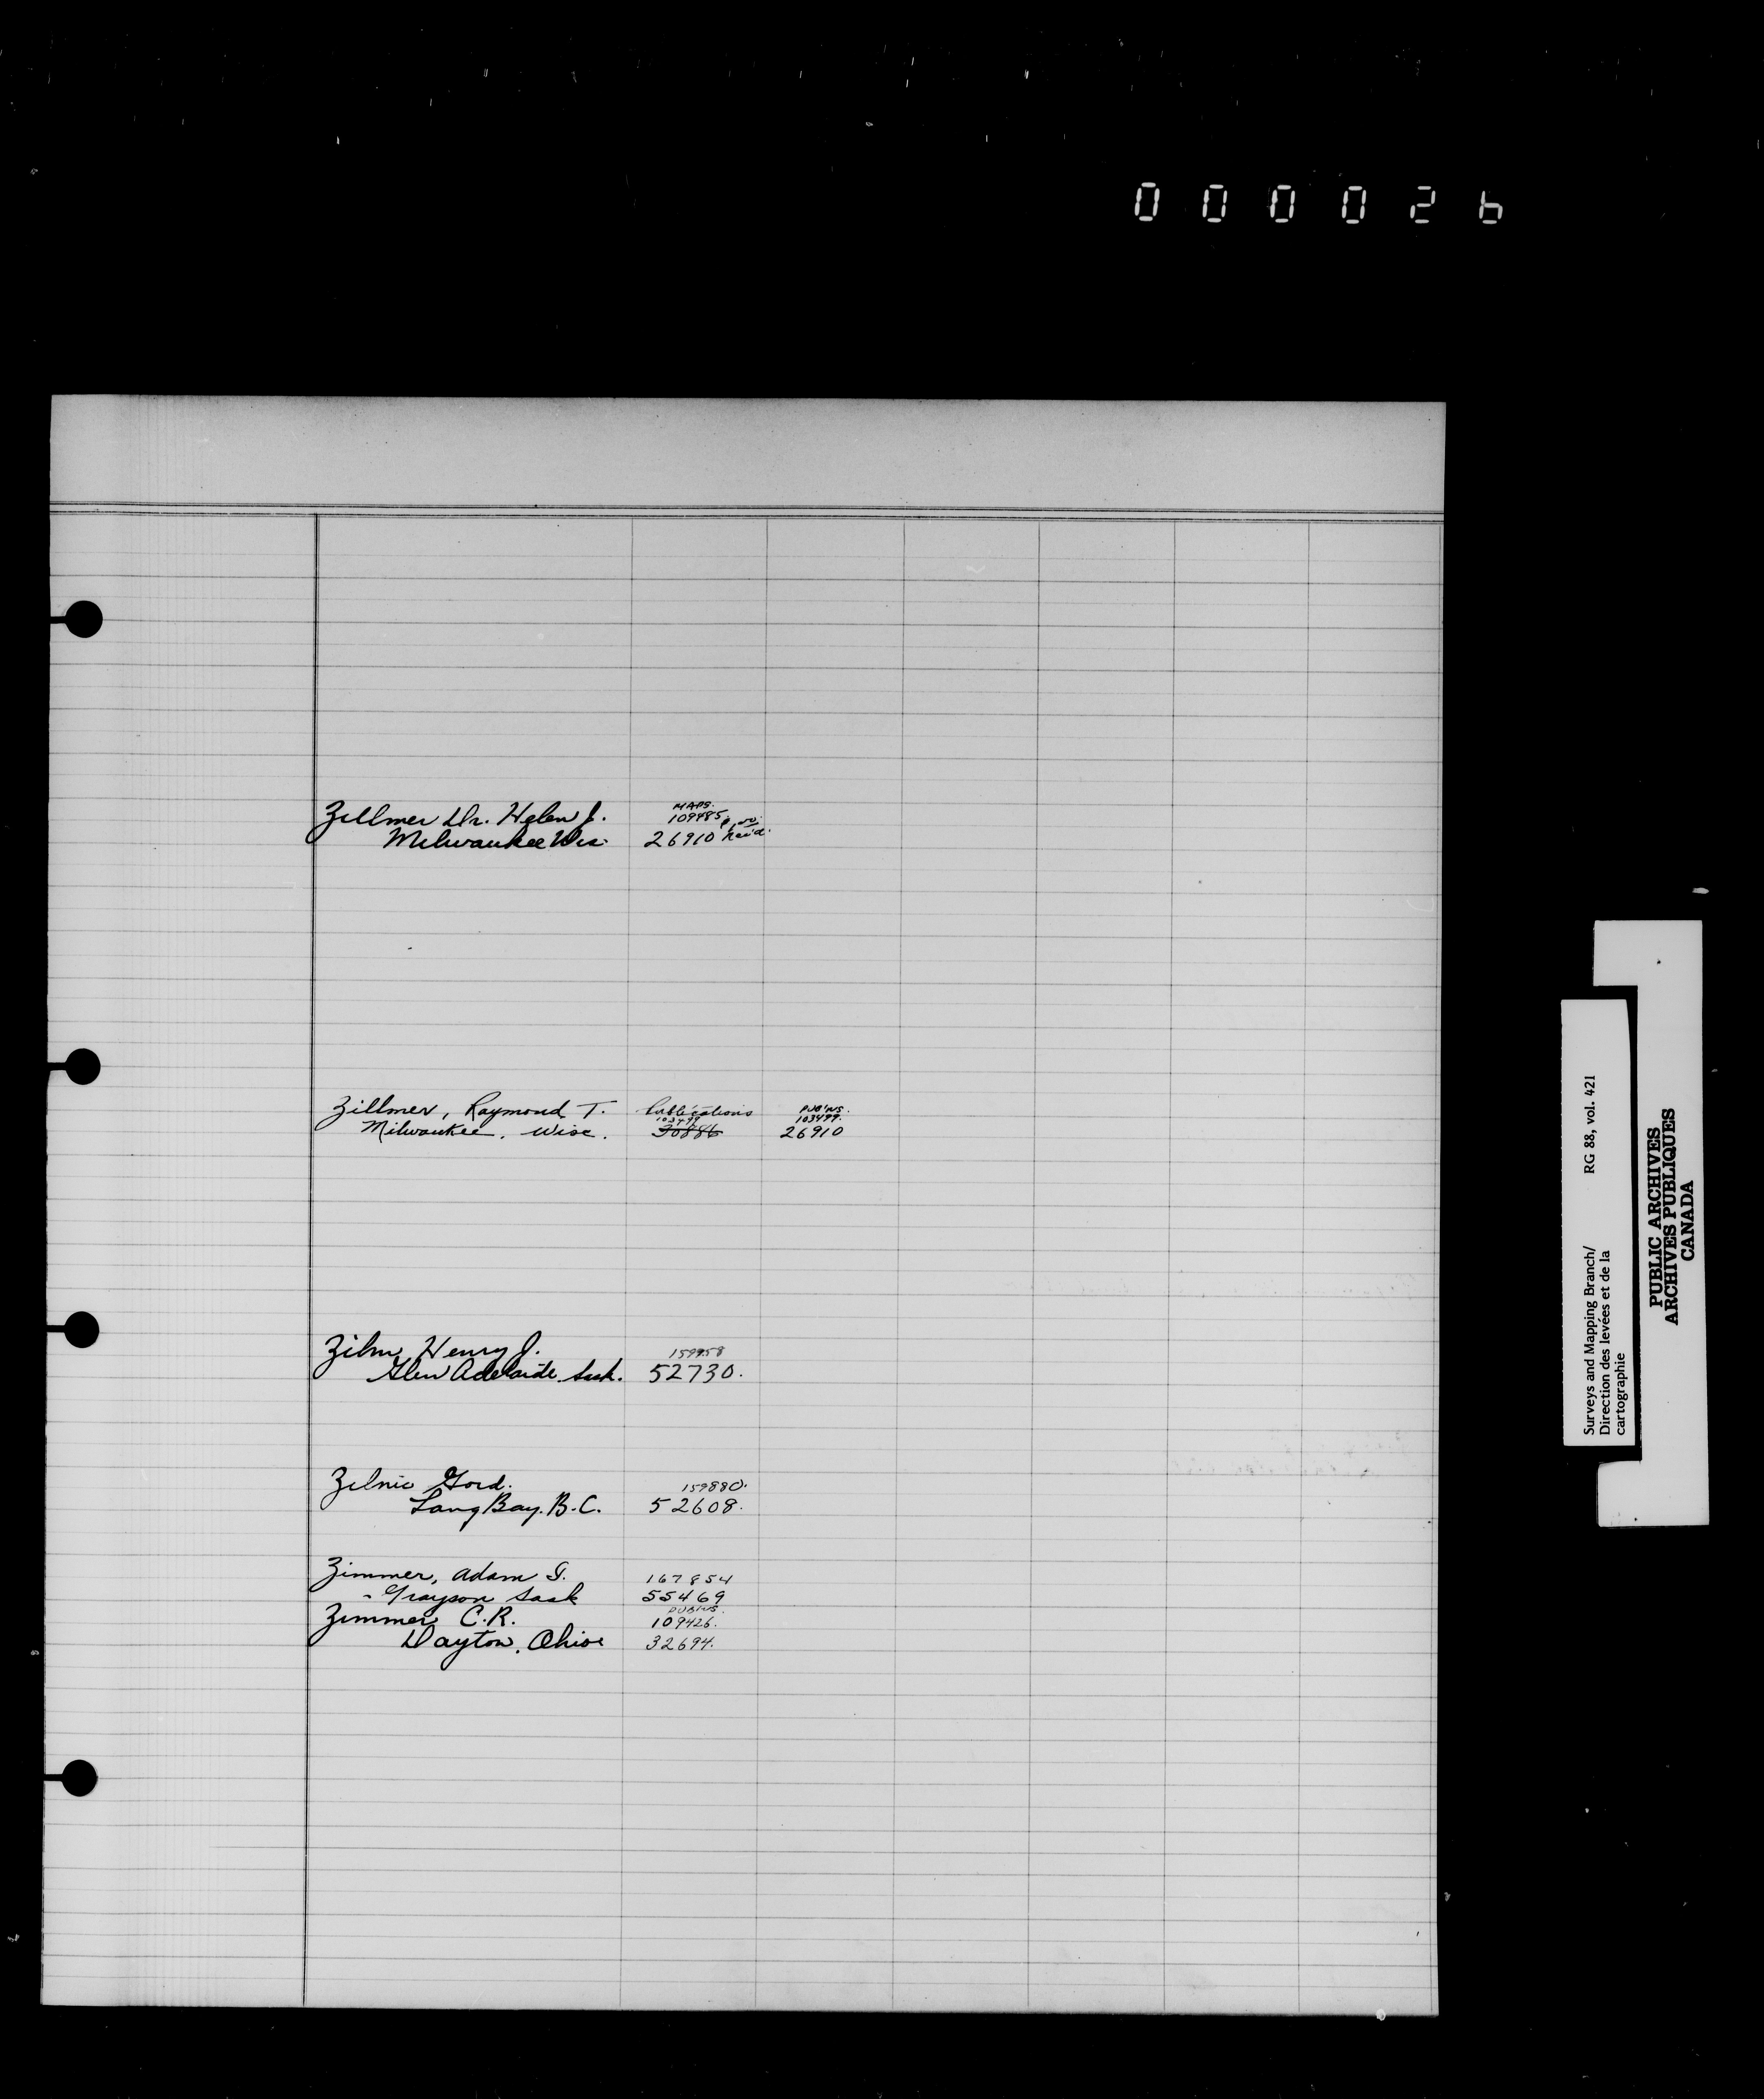 000026
MAPS.
Zillmer Dr. Helen J. 109485
Milwaukee Wis. 26910
Zillmer, Raymond T. Publications PUB'NS.
103499 103499.
Milwaukee, Wisc. 30886 26910
Zilm, Henry J. 159958
Glen Adelaide, Sask. 52730.
Zilnic Gord. 159880.
Lang Bay. B.C. 52608.
Zimmer, Adam G. 167854
- Grayson Sask 55469
PUBINS.
Zimmer C.R. 109426.
Dayton, Ohio 32694.
Surveys and Mapping Branch/ RG 88, vol. 421
Direction des levées et de la
cartographie
PUBLIC ARCHIVES
ARCHIVES PUBLIQUES
CANADA